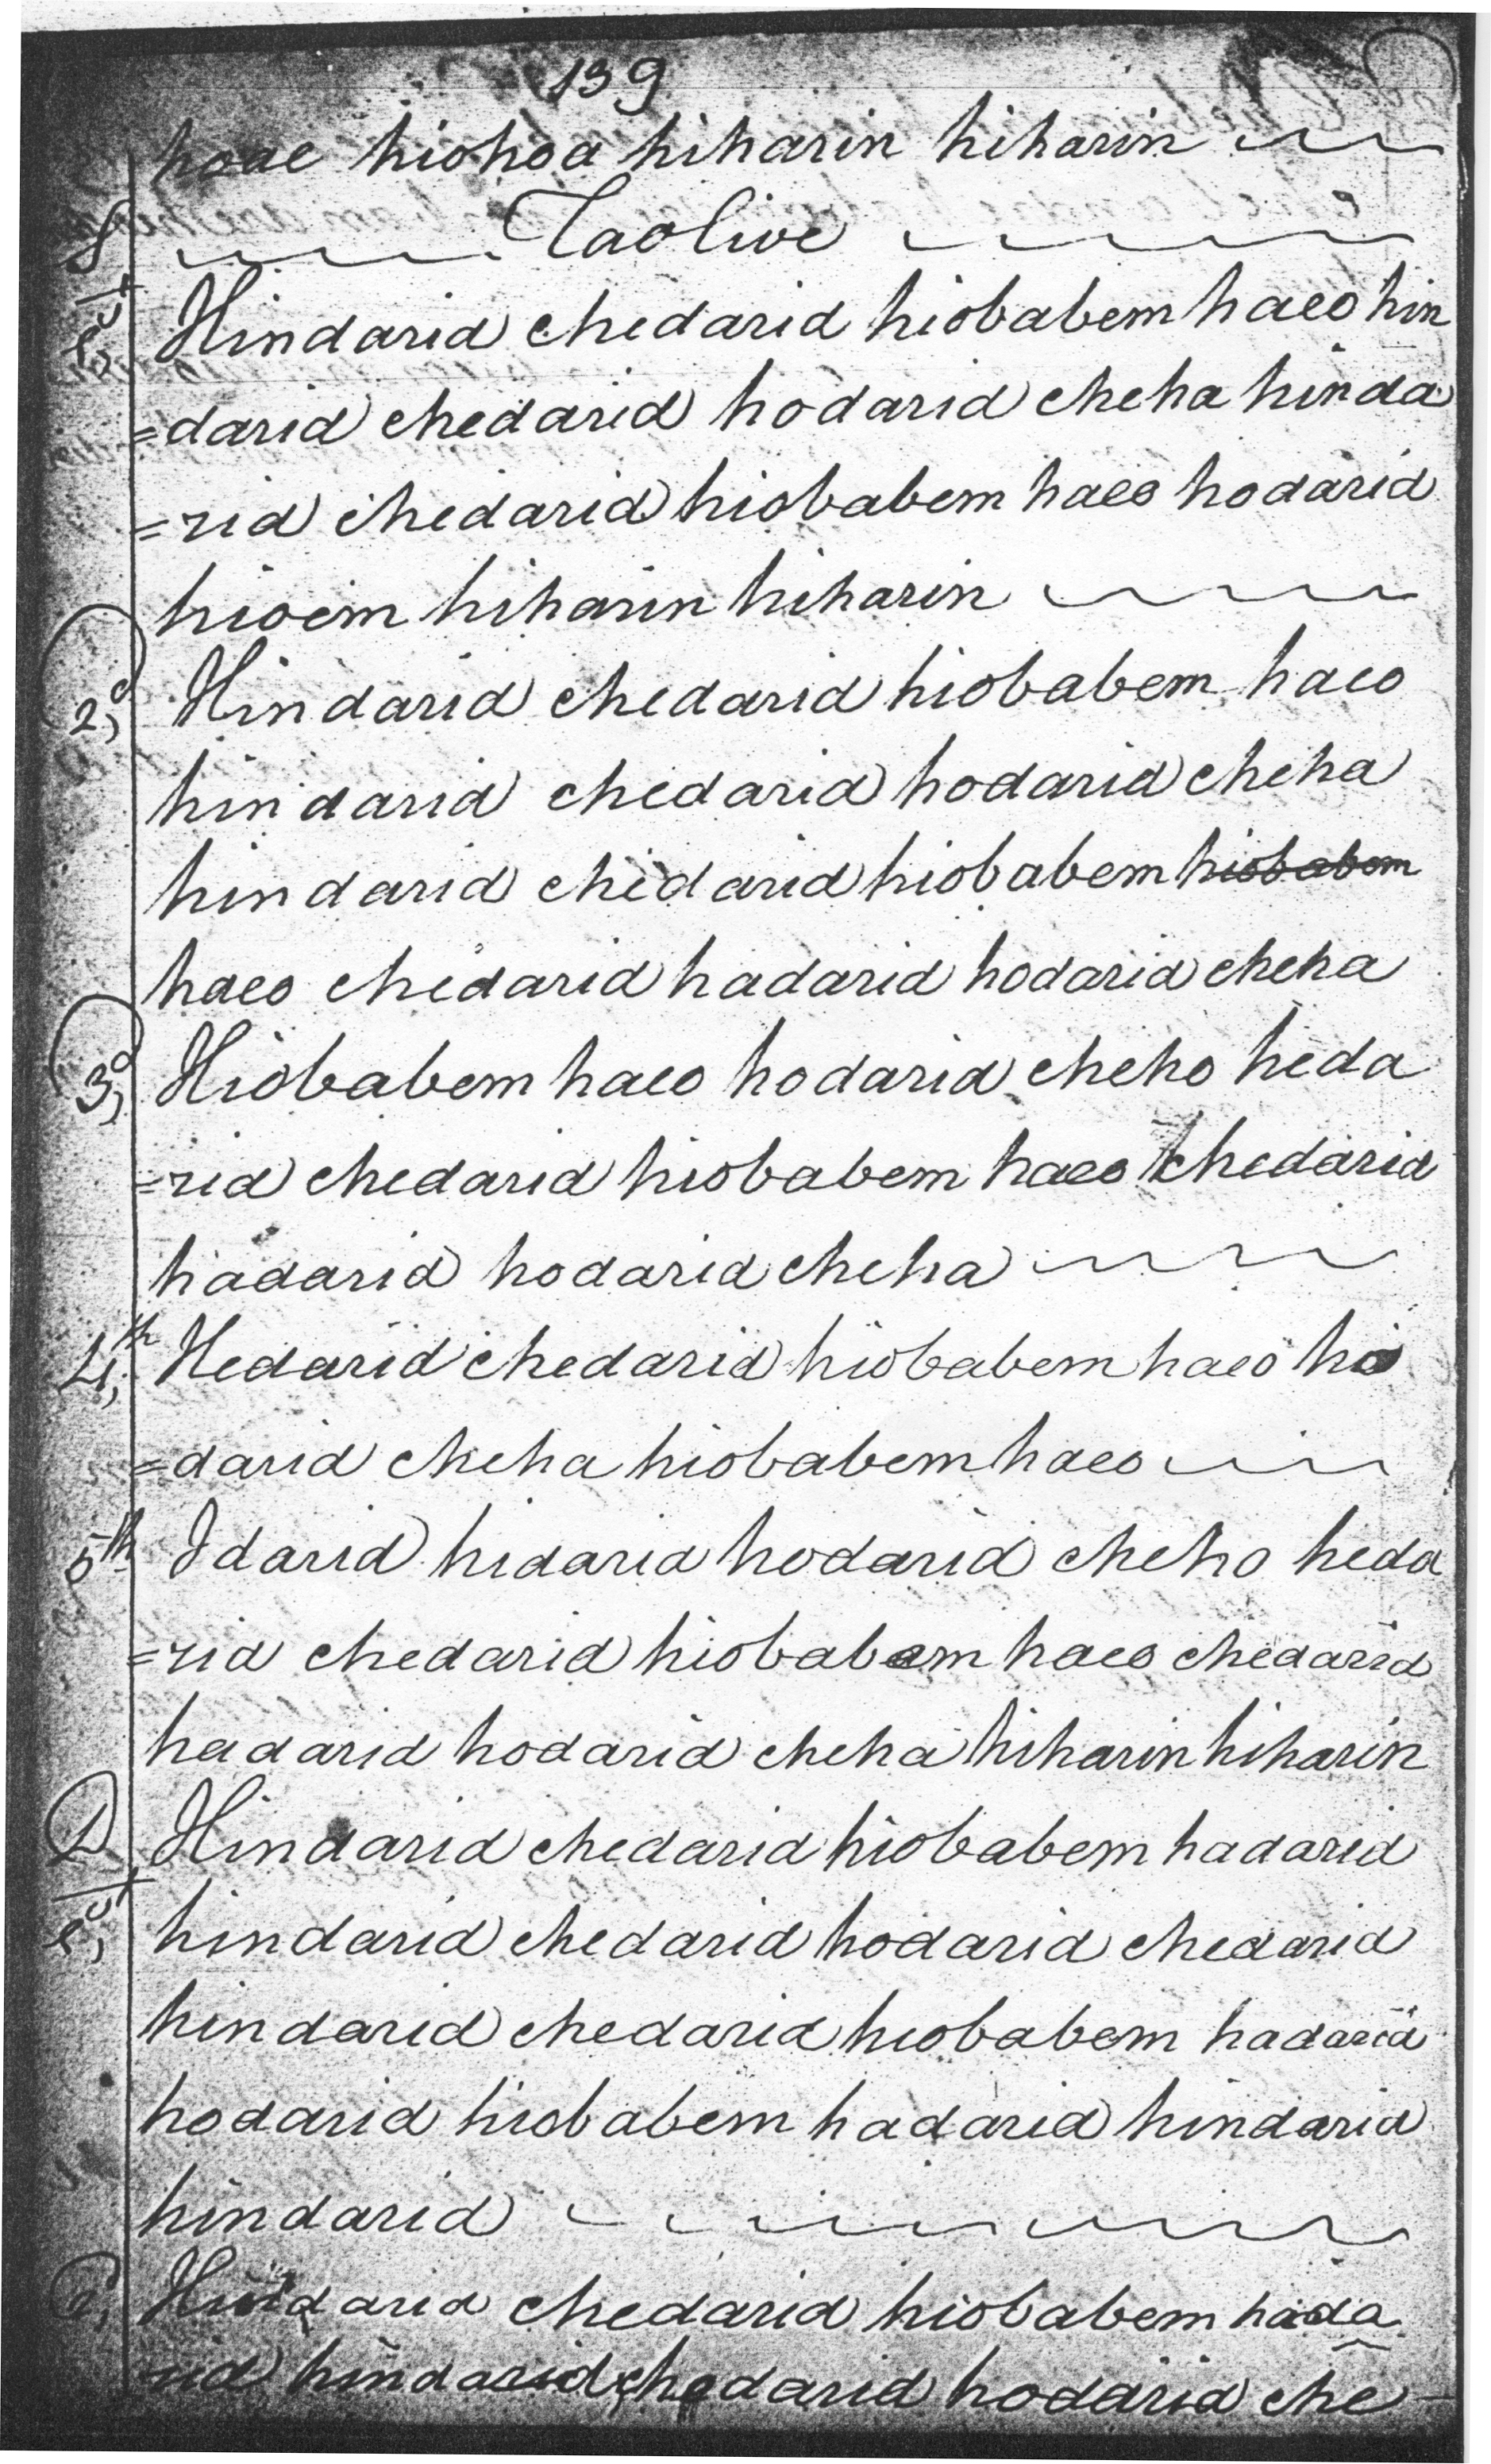 139
hoae hiohoa hiharin hiharin
S Taolive
1st Hindarid chedarid hiobabem haeo hin
=darid chedarid hodarid cheha hinda
=rid chedarid hiobabem haeo hodarid
hioem hiharin hiharin
2,d Hindarid chedarid hiobabem haeo
hindarid chedarid hodarid cheha
hindarid chedarid hiobabem hiobabem
haeo chedarid hadarid hodarid cheha
3,d Hiobabem haeo hodarid cheho heda
=rid chedarid hiobabem haeo chedarid
hadarid hodarid cheha
4,th Hedarid chedarid hiobabem haeo ho
=darid cheha hiobabem haeo
5th Idarid hidarid hodarid cheho heda
=rid chedarid hiobabem haeo chedarid
hadarid hodarid cheha hiharin hiharin
D Hindarid chedarid hiobabem hadarid
1st hindarid chedarid hodarid chedarid
hindarid chedarid hiobabem hadarid
hodarid hiobabem hadarid hindarid
hindarid
2, Hindarid chedarid hiobabem hada
rid hindarid chedarid hodarid che-